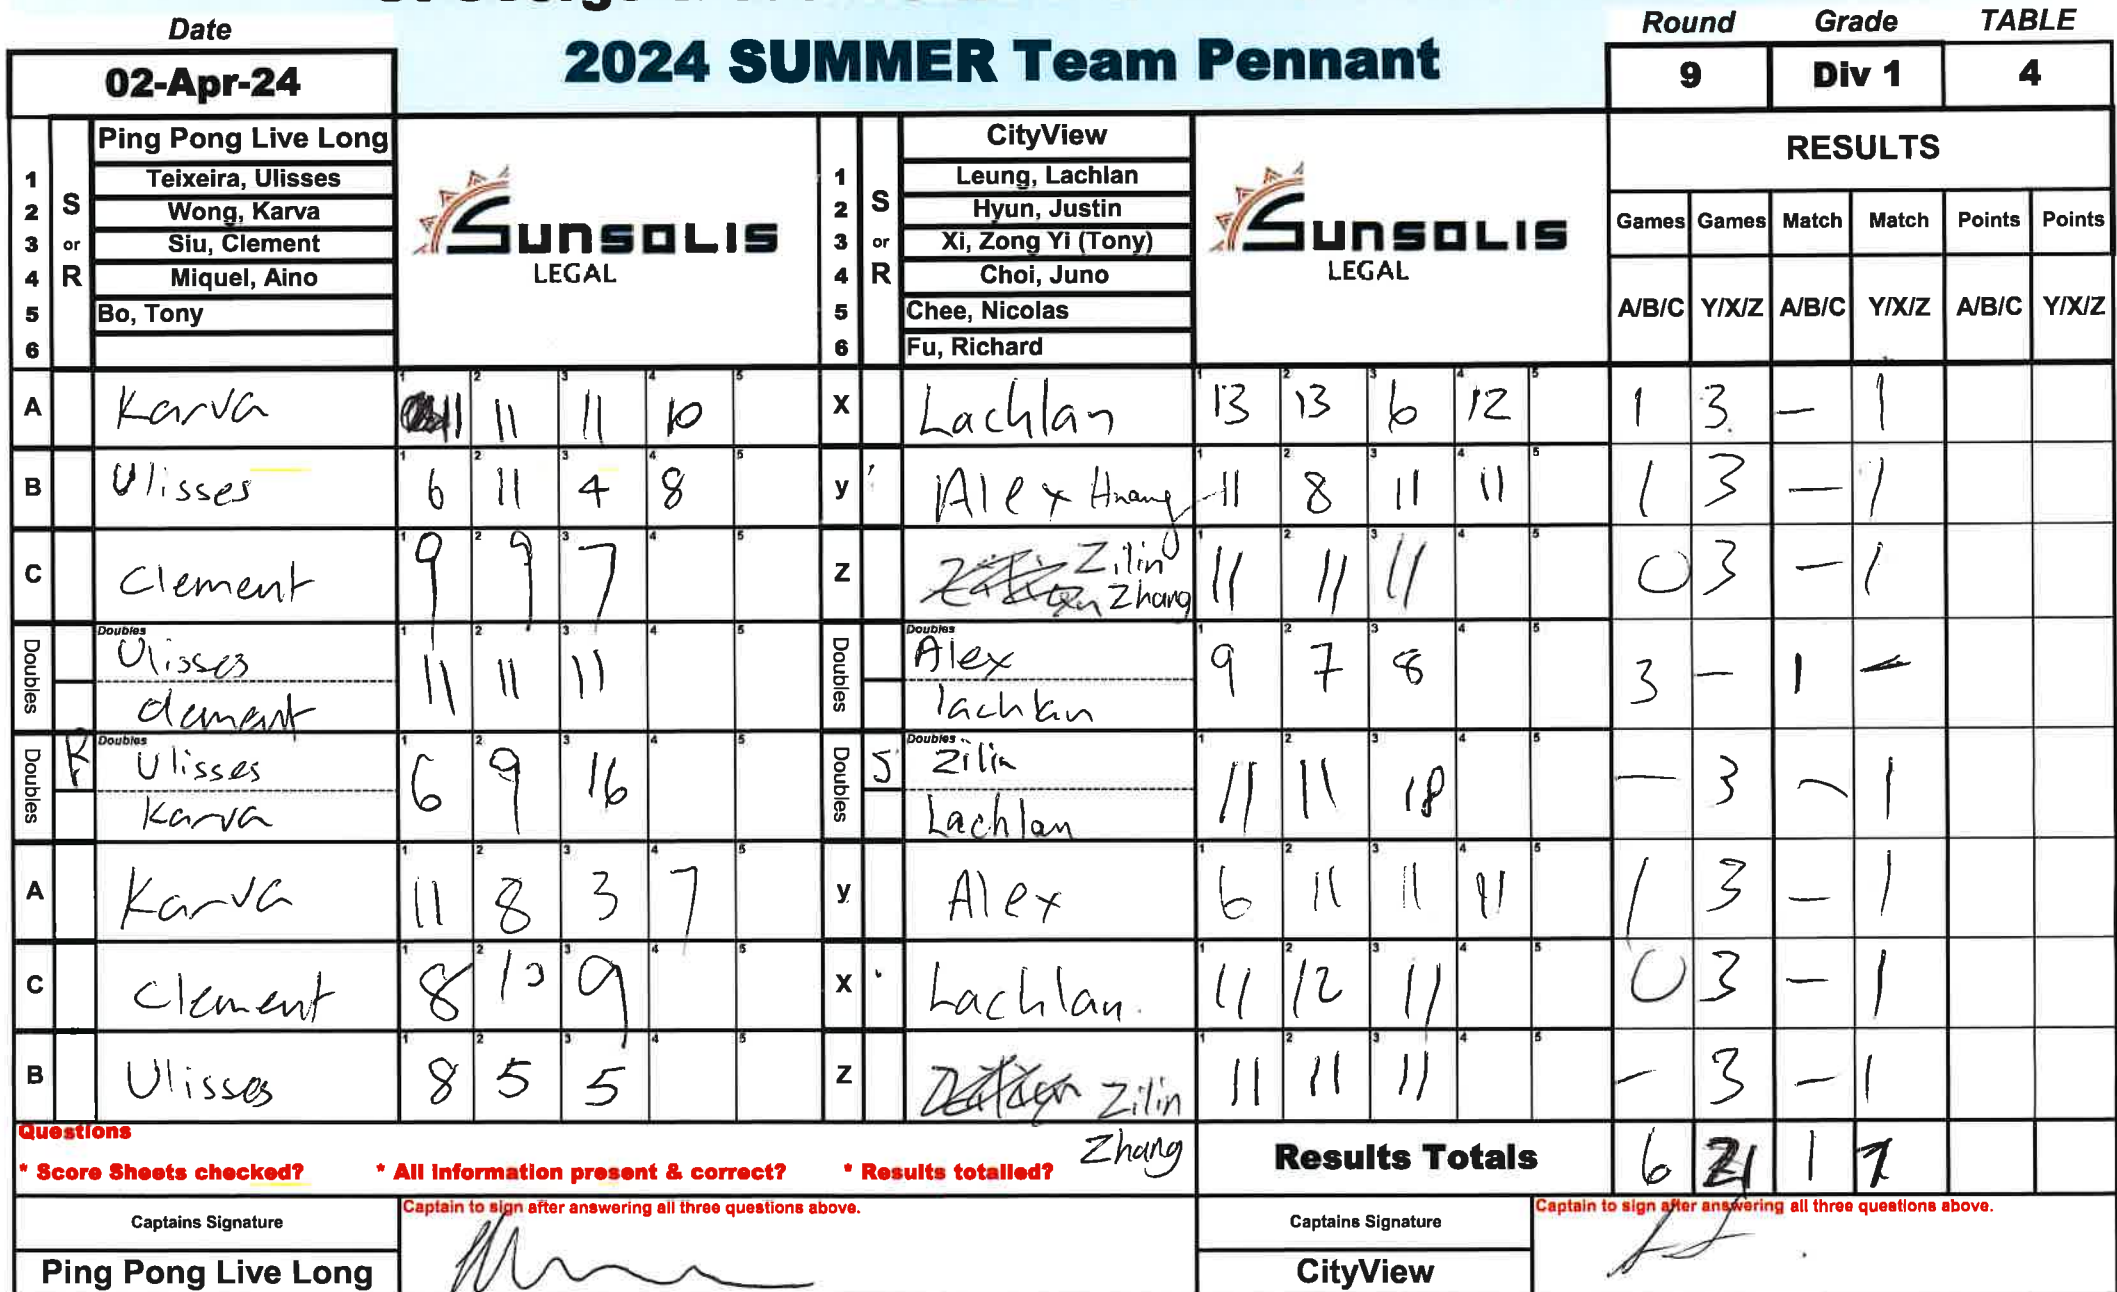 Date
02-Apr-24
2024 SUMMER Team Pennant
Round Grade TABLE
9 Div 1 4
S or R
Ping Pong Live Long
1 Teixeira, Ulisses
2 Wong, Karva
3 Siu, Clement
4 Miquel, Aino
5 Bo, Tony
6
SUNSOLIS
LEGAL
S or R
CityView
1 Leung, Lachlan
2 Hyun, Justin
3 Xi, Zong Yi (Tony)
4 Choi, Juno
5 Chee, Nicolas
6 Fu, Richard
SUNSOLIS
LEGAL
RESULTS
Games Games Match Match Points Points
A/B/C Y/X/Z A/B/C Y/X/Z A/B/C Y/X/Z
A Karva 11 11 11 10 X Lachlan 13 13 6 12 1 3 – 1
B Ulisses 6 11 4 8 y Alex Huang 11 8 11 11 1 3 – 1
C Clement 9 9 7 Z Zilin Zhang 11 11 11 0 3 – 1
Doubles Doubles Ulisses Clement 11 11 11 Doubles Doubles Alex lachlan 9 7 8 3 – 1 –
Doubles R Doubles Ulisses Karva 6 9 16 Doubles S Doubles Zilin Lachlan 11 11 18 – 3 – 1
A Karva 11 8 3 7 y Alex 6 11 11 11 1 3 – 1
C Clement 8 10 9 X Lachlan. 11 12 11 0 3 – 1
B Ulisses 8 5 5 Z Zilin Zhang 11 11 11 – 3 – 1
Questions
* Score Sheets checked? * All information present & correct? * Results totalled?
Results Totals 6 21 1 7
Captains Signature
Captain to sign after answering all three questions above.
Ping Pong Live Long
Captains Signature
Captain to sign after answering all three questions above.
CityView